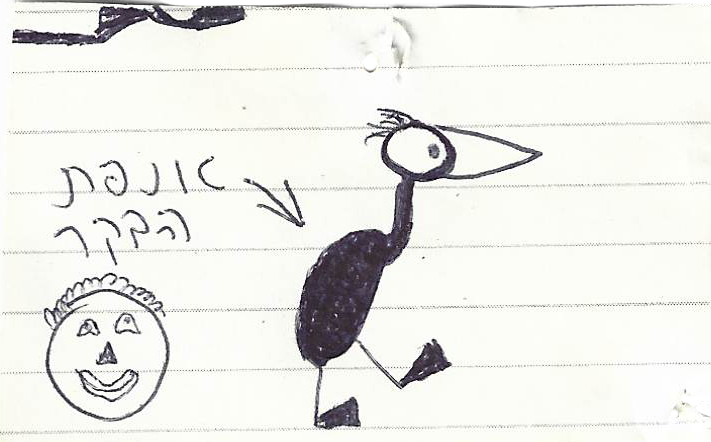 אנפת
הבקר